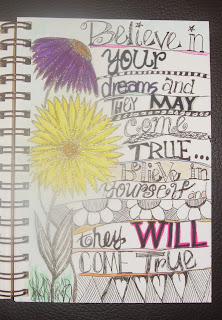 Believe in
your
dreams and
THEY MAY
come
TRUE...
Believe in
yourself and
they WILL
COME True